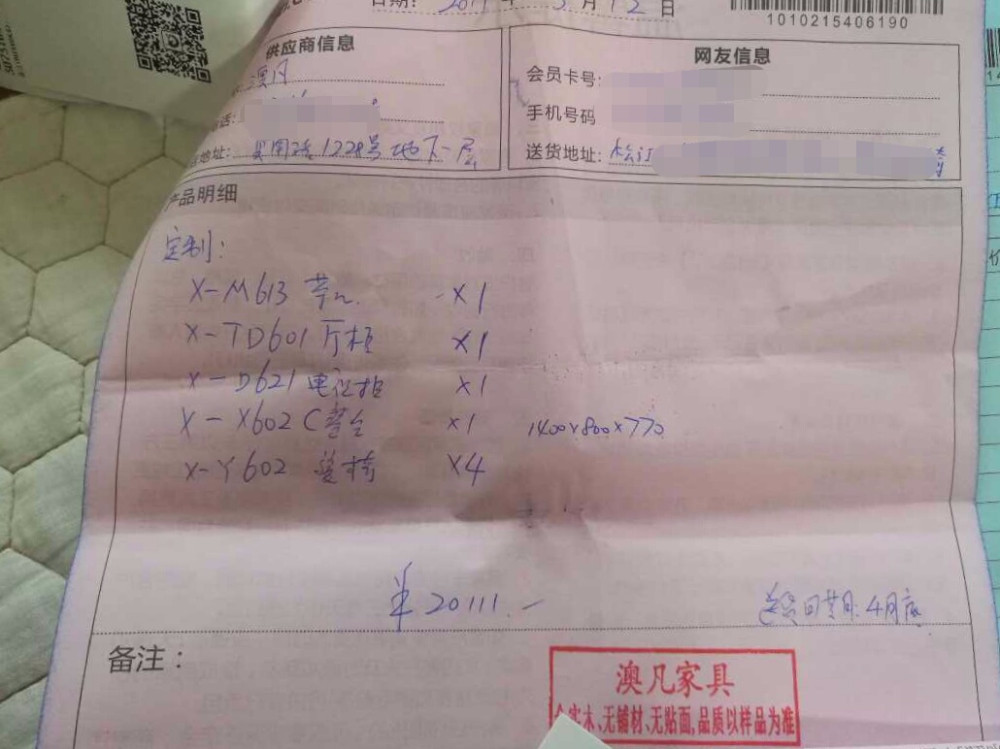 日期: 2019年 3月12日
1010215406190
供应商信息
澳凡
话:
地址: 1228号地下一层
网友信息
会员卡号:
手机号码
送货地址: 松江
产品明细
定制:
X-M613 茶几 X1
X-TD601 厅柜 X1
X-D621 电视柜 X1
X-X602C餐台 X1 1400×800×770
X-Y602 餐椅 X4
¥20111.-
送货日期:4月底
备注:
澳凡家具
全实木、无辅材、无贴面,品质以样品为准